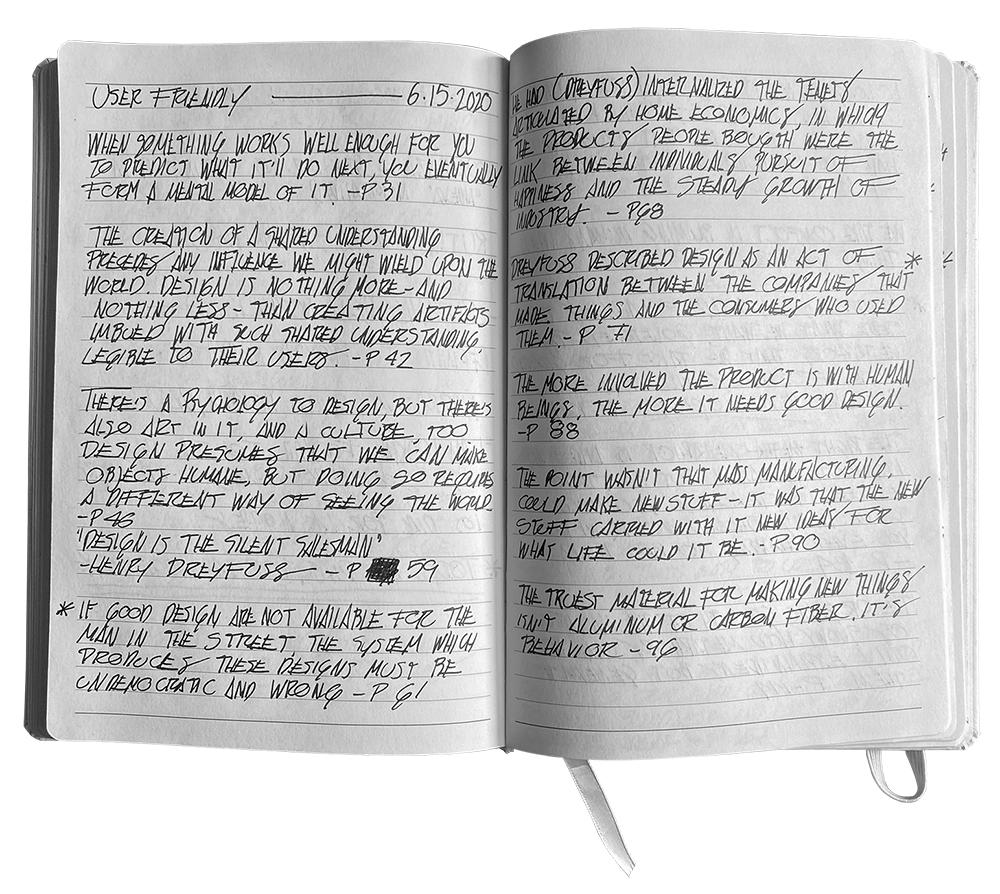 USER FRIENDLY — 6.15.2020
WHEN SOMETHING WORKS WELL ENOUGH FOR YOU
TO PREDICT WHAT IT'LL DO NEXT, YOU EVENTUALLY
FORM A MENTAL MODEL OF IT. -P 31
THE CREATION OF A SHARED UNDERSTANDING
PRECEDES ANY INFLUENCE WE MIGHT WIELD UPON THE
WORLD. DESIGN IS NOTHING MORE - AND
NOTHING LESS - THAN CREATING ARTIFACTS
IMBUED WITH SUCH SHARED UNDERSTANDING,
LEGIBLE TO THEIR USERS. -P 42
THERE'S A PSYCHOLOGY TO DESIGN, BUT THERE'S
ALSO ART IN IT, AND A CULTURE, TOO
DESIGN PRESUMES THAT WE CAN MAKE
OBJECTS HUMANE, BUT DOING SO REQUIRES
A DIFFERENT WAY OF SEEING THE WORLD
-P46
"DESIGN IS THE SILENT SALESMAN"
-HENRY DREYFUSS - P 59
* IF GOOD DESIGN ARE NOT AVAILABLE FOR THE
MAN IN THE STREET, THE SYSTEM WHICH
PRODUCES THESE DESIGNS MUST BE
UNDEMOCRATIC AND WRONG - P 61
HE HAD (DREYFUSS) INTERNALIZED THE TENETS
ARTICULATED BY HOME ECONOMICS, IN WHICH
THE PRODUCTS PEOPLE BOUGHT WERE THE
LINK BETWEEN INDIVIDUALS PURSUIT OF
HAPPINESS AND THE STEADY GROWTH OF
INDUSTRY. - P68
DREYFUSS DESCRIBED DESIGN AS AN ACT OF *
TRANSLATION BETWEEN THE COMPANIES THAT
MADE THINGS AND THE CONSUMERS WHO USED
THEM. - P 71
THE MORE INVOLVED THE PRODUCT IS WITH HUMAN
BEINGS, THE MORE IT NEEDS GOOD DESIGN.
-P 88
THE POINT WASN'T THAT MASS MANUFACTURING,
COULD MAKE NEW STUFF - IT WAS THAT THE NEW
STUFF CARRIED WITH IT NEW IDEAS FOR
WHAT LIFE COULD IT BE. - P90
THE TRUEST MATERIAL FOR MAKING NEW THINGS
ISN'T ALUMINUM OR CARBON FIBER. IT'S
BEHAVIOR - 96